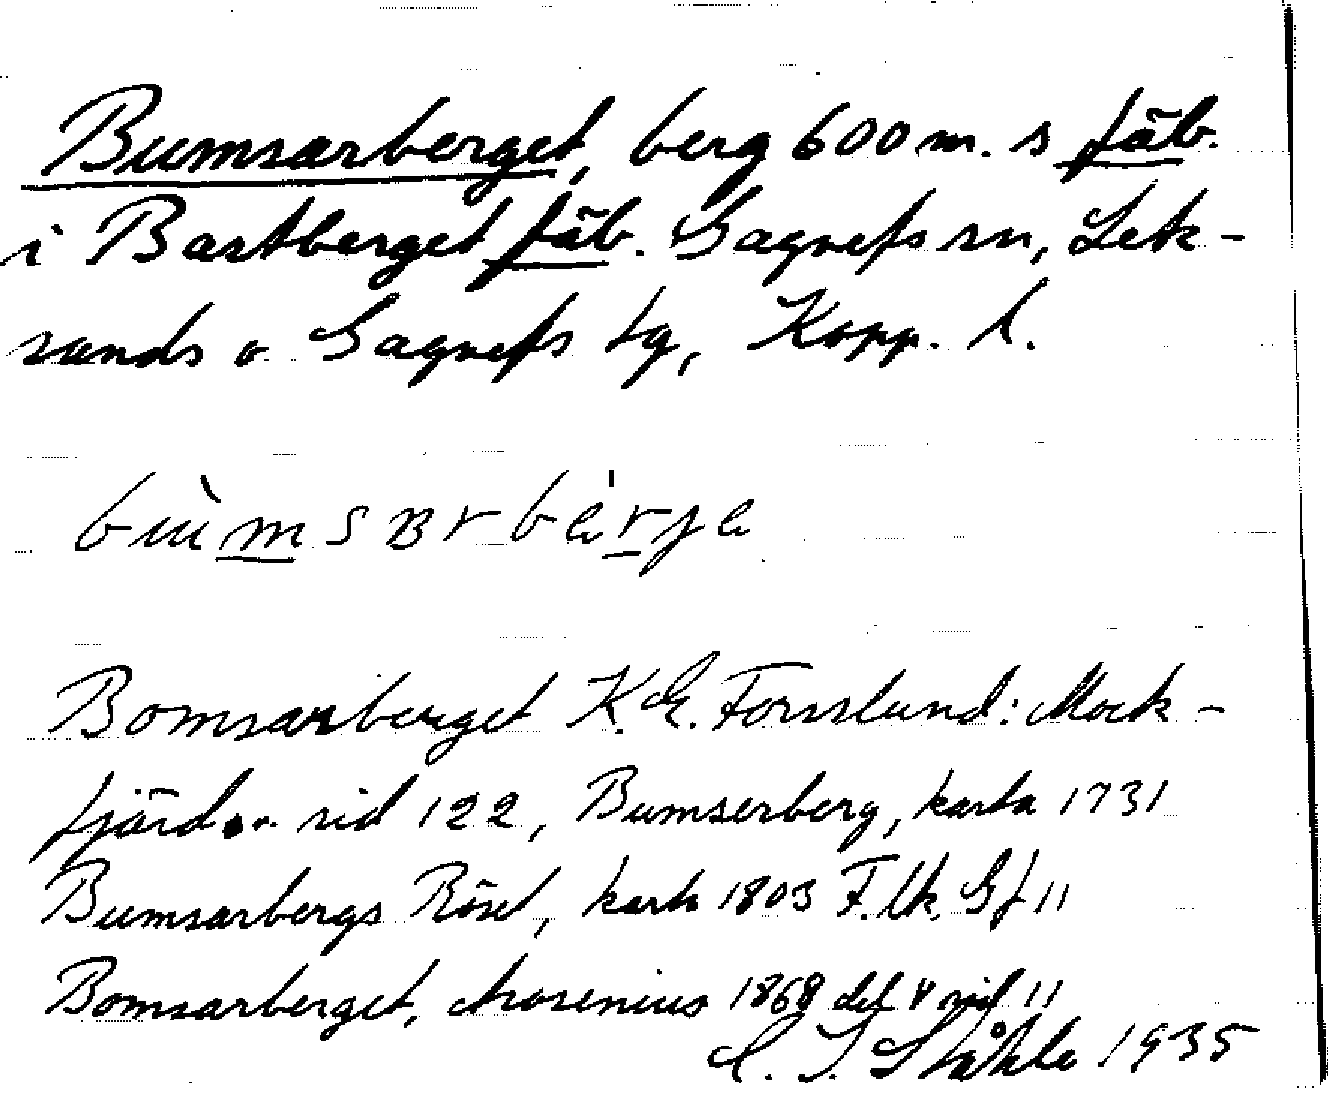 Bumsarberget, berg 600 m. s fäb.
i Bastberget fäb. Gagnefs sn, Lek-
sands o. Gagnefs tg, Kopp. l.
bùmsɐrbèrje
Bomsarberget K.E. Forsslund: Mock-
fjärd.. sid 122, Bumserberg, karta 1731
Bumsarbergs Röset, karta 1803 F.lk. Gf 11
Bomsarberget, Arosenius 1868 del 4 sid 11
C. I. Ståhle 1935